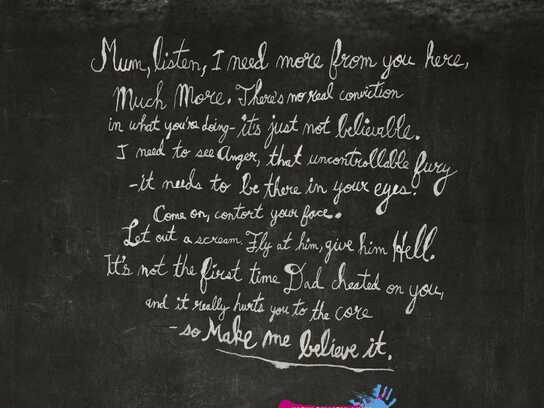 Mum, listen, I need more from you here,
Much More. There's no real conviction
in what you're doing - it's just not believable.
I need to see Anger, that uncontrollable fury
- it needs to be there in your eyes.
Come on, contort your face..
Let out a scream. Fly at him, give him Hell.
It's not the first time Dad cheated on you,
and it really hurts you to the core
- so Make me believe it.